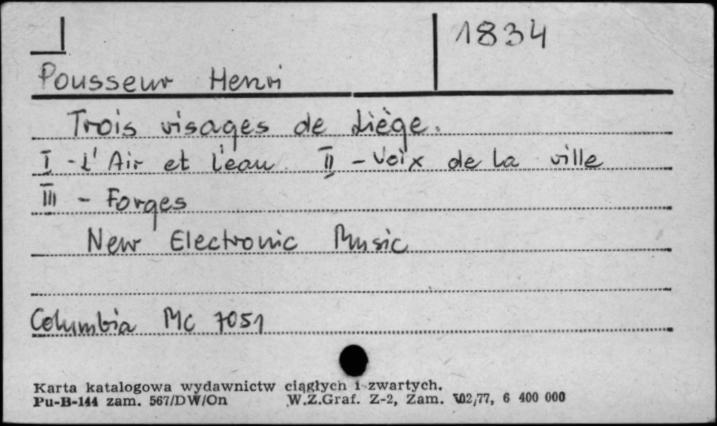 1834
Pousseur Henri
Trois visages de Liège.
I - L'Air et l'eau II - Voix de la ville
III - Forges
New Electronic Music
Columbia MC 7051
Karta katalogowa wydawnictw ciągłych i zwartych.
Pu-B-144 zam. 567/DW/On W.Z.Graf. Z-2, Zam. 702/77, 6 400 000